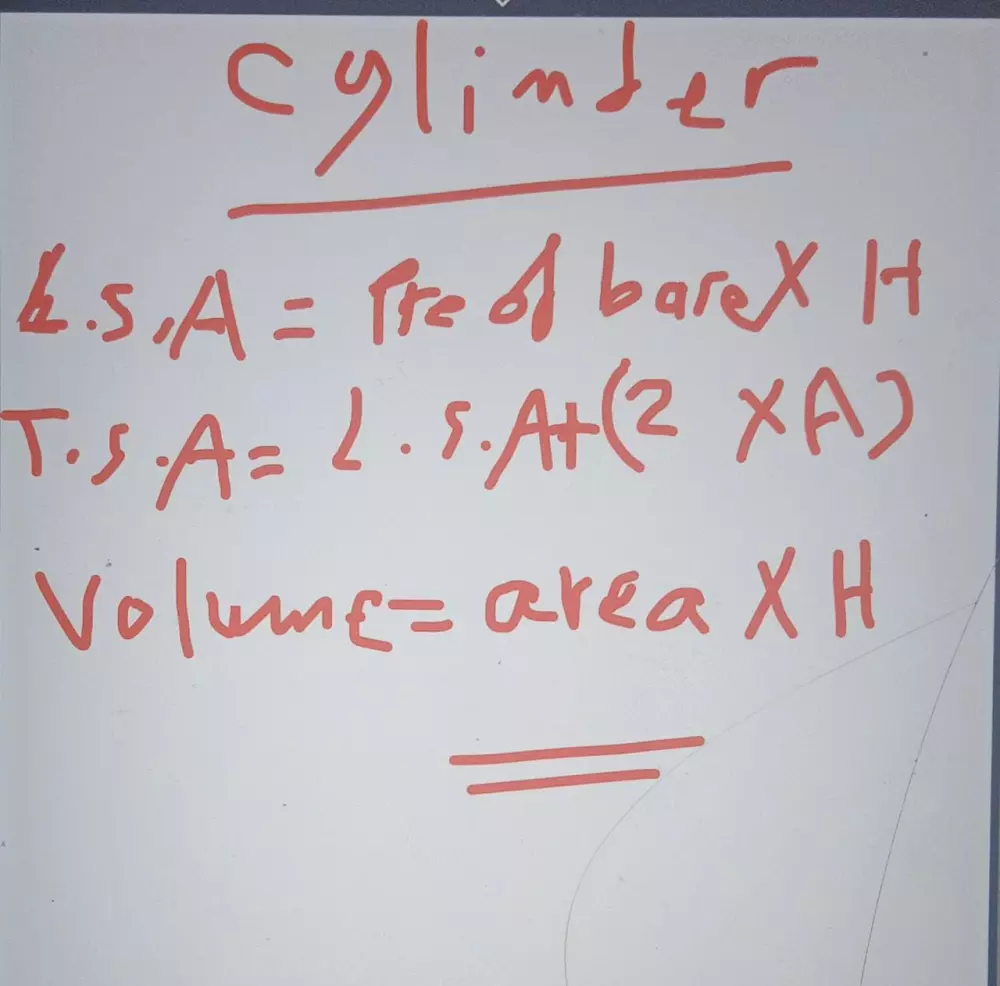 Cylinder
L.S.A = Pre of base X H
T.S.A = L.S.A+(2 X A)
Volume = area X H